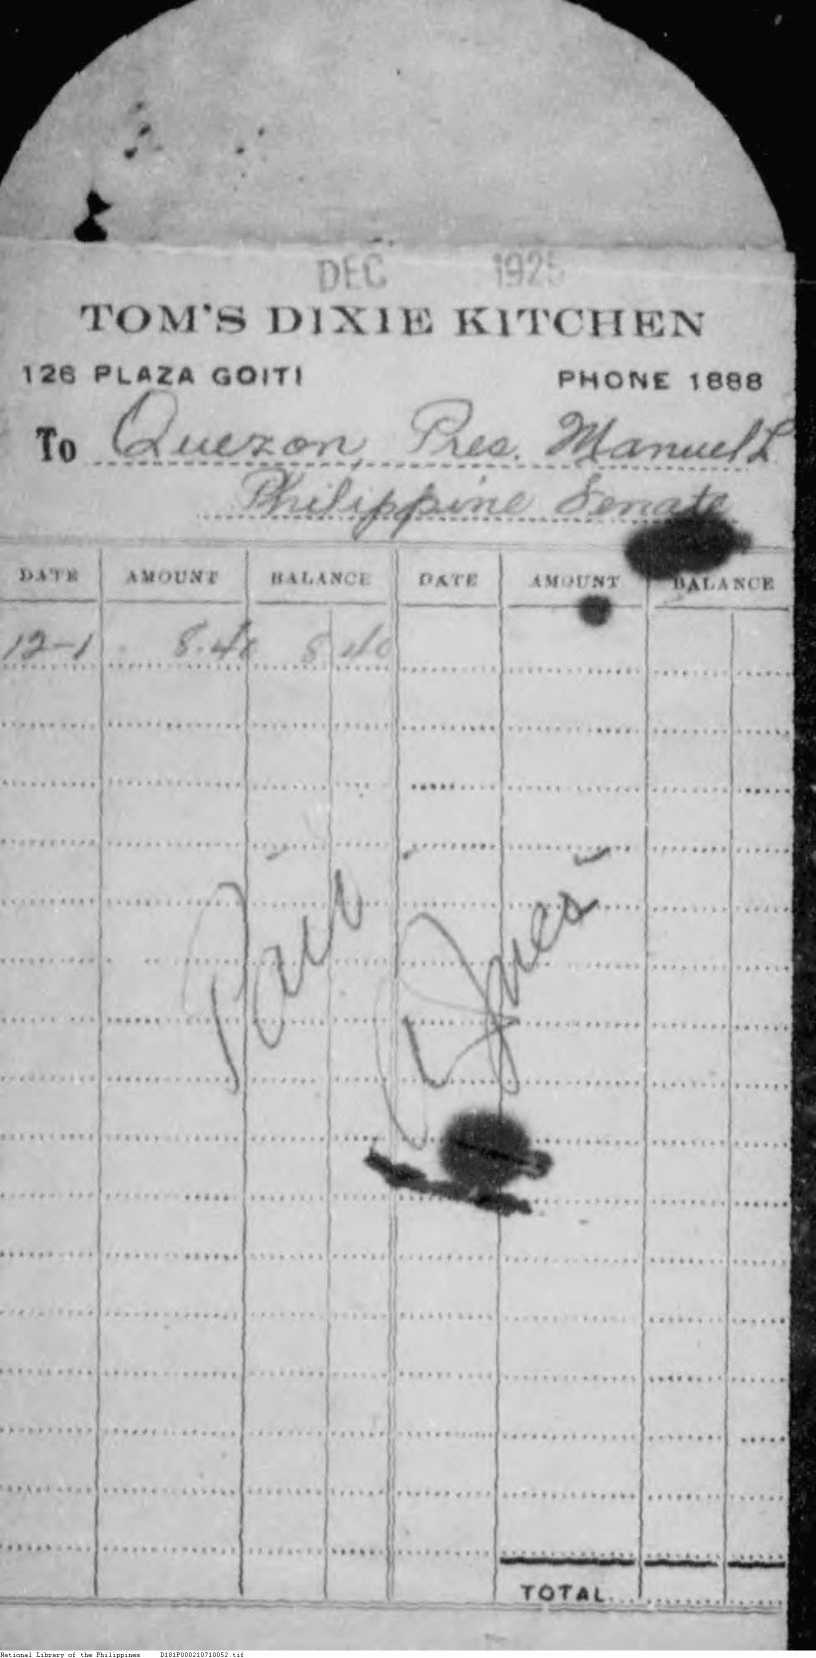 DEC 1925
TOM'S DIXIE KITCHEN
126 PLAZA GOITI PHONE 1888
To Quezon, Pres. Manuel L
Philippine Senate
DATE AMOUNT BALANCE DATE AMOUNT BALANCE
12-1 8.40 8 40
Paid
TOTAL
National Library of the Philippines D181P000210710052.tif